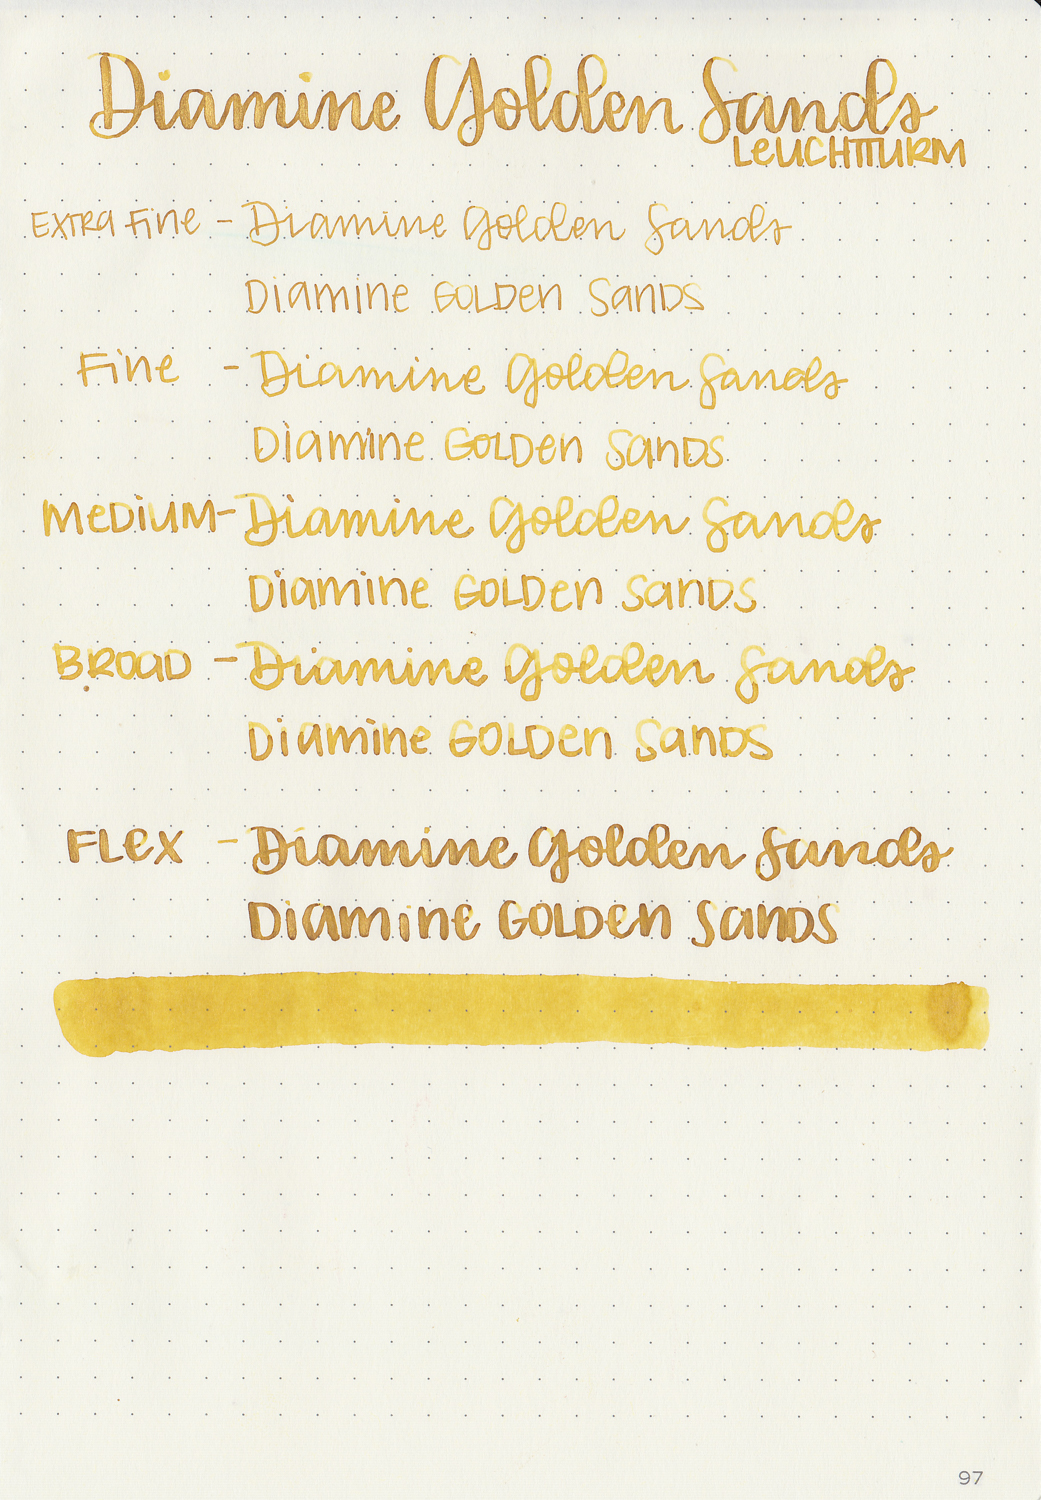 Diamine Golden Sands
LEUCHTTURM
EXTRA Fine - Diamine Golden Sands
Diamine GOLDen SanDS
Fine - Diamine Golden Sands
Diamine GOLDen SanDS
MeDiUM - Diamine Golden Sands
Diamine GOLDen SanDS
BROAD - Diamine Golden Sands
Diamine GOLDen SanDS
FLex - Diamine Golden Sands
Diamine GOLDen SanDS
97